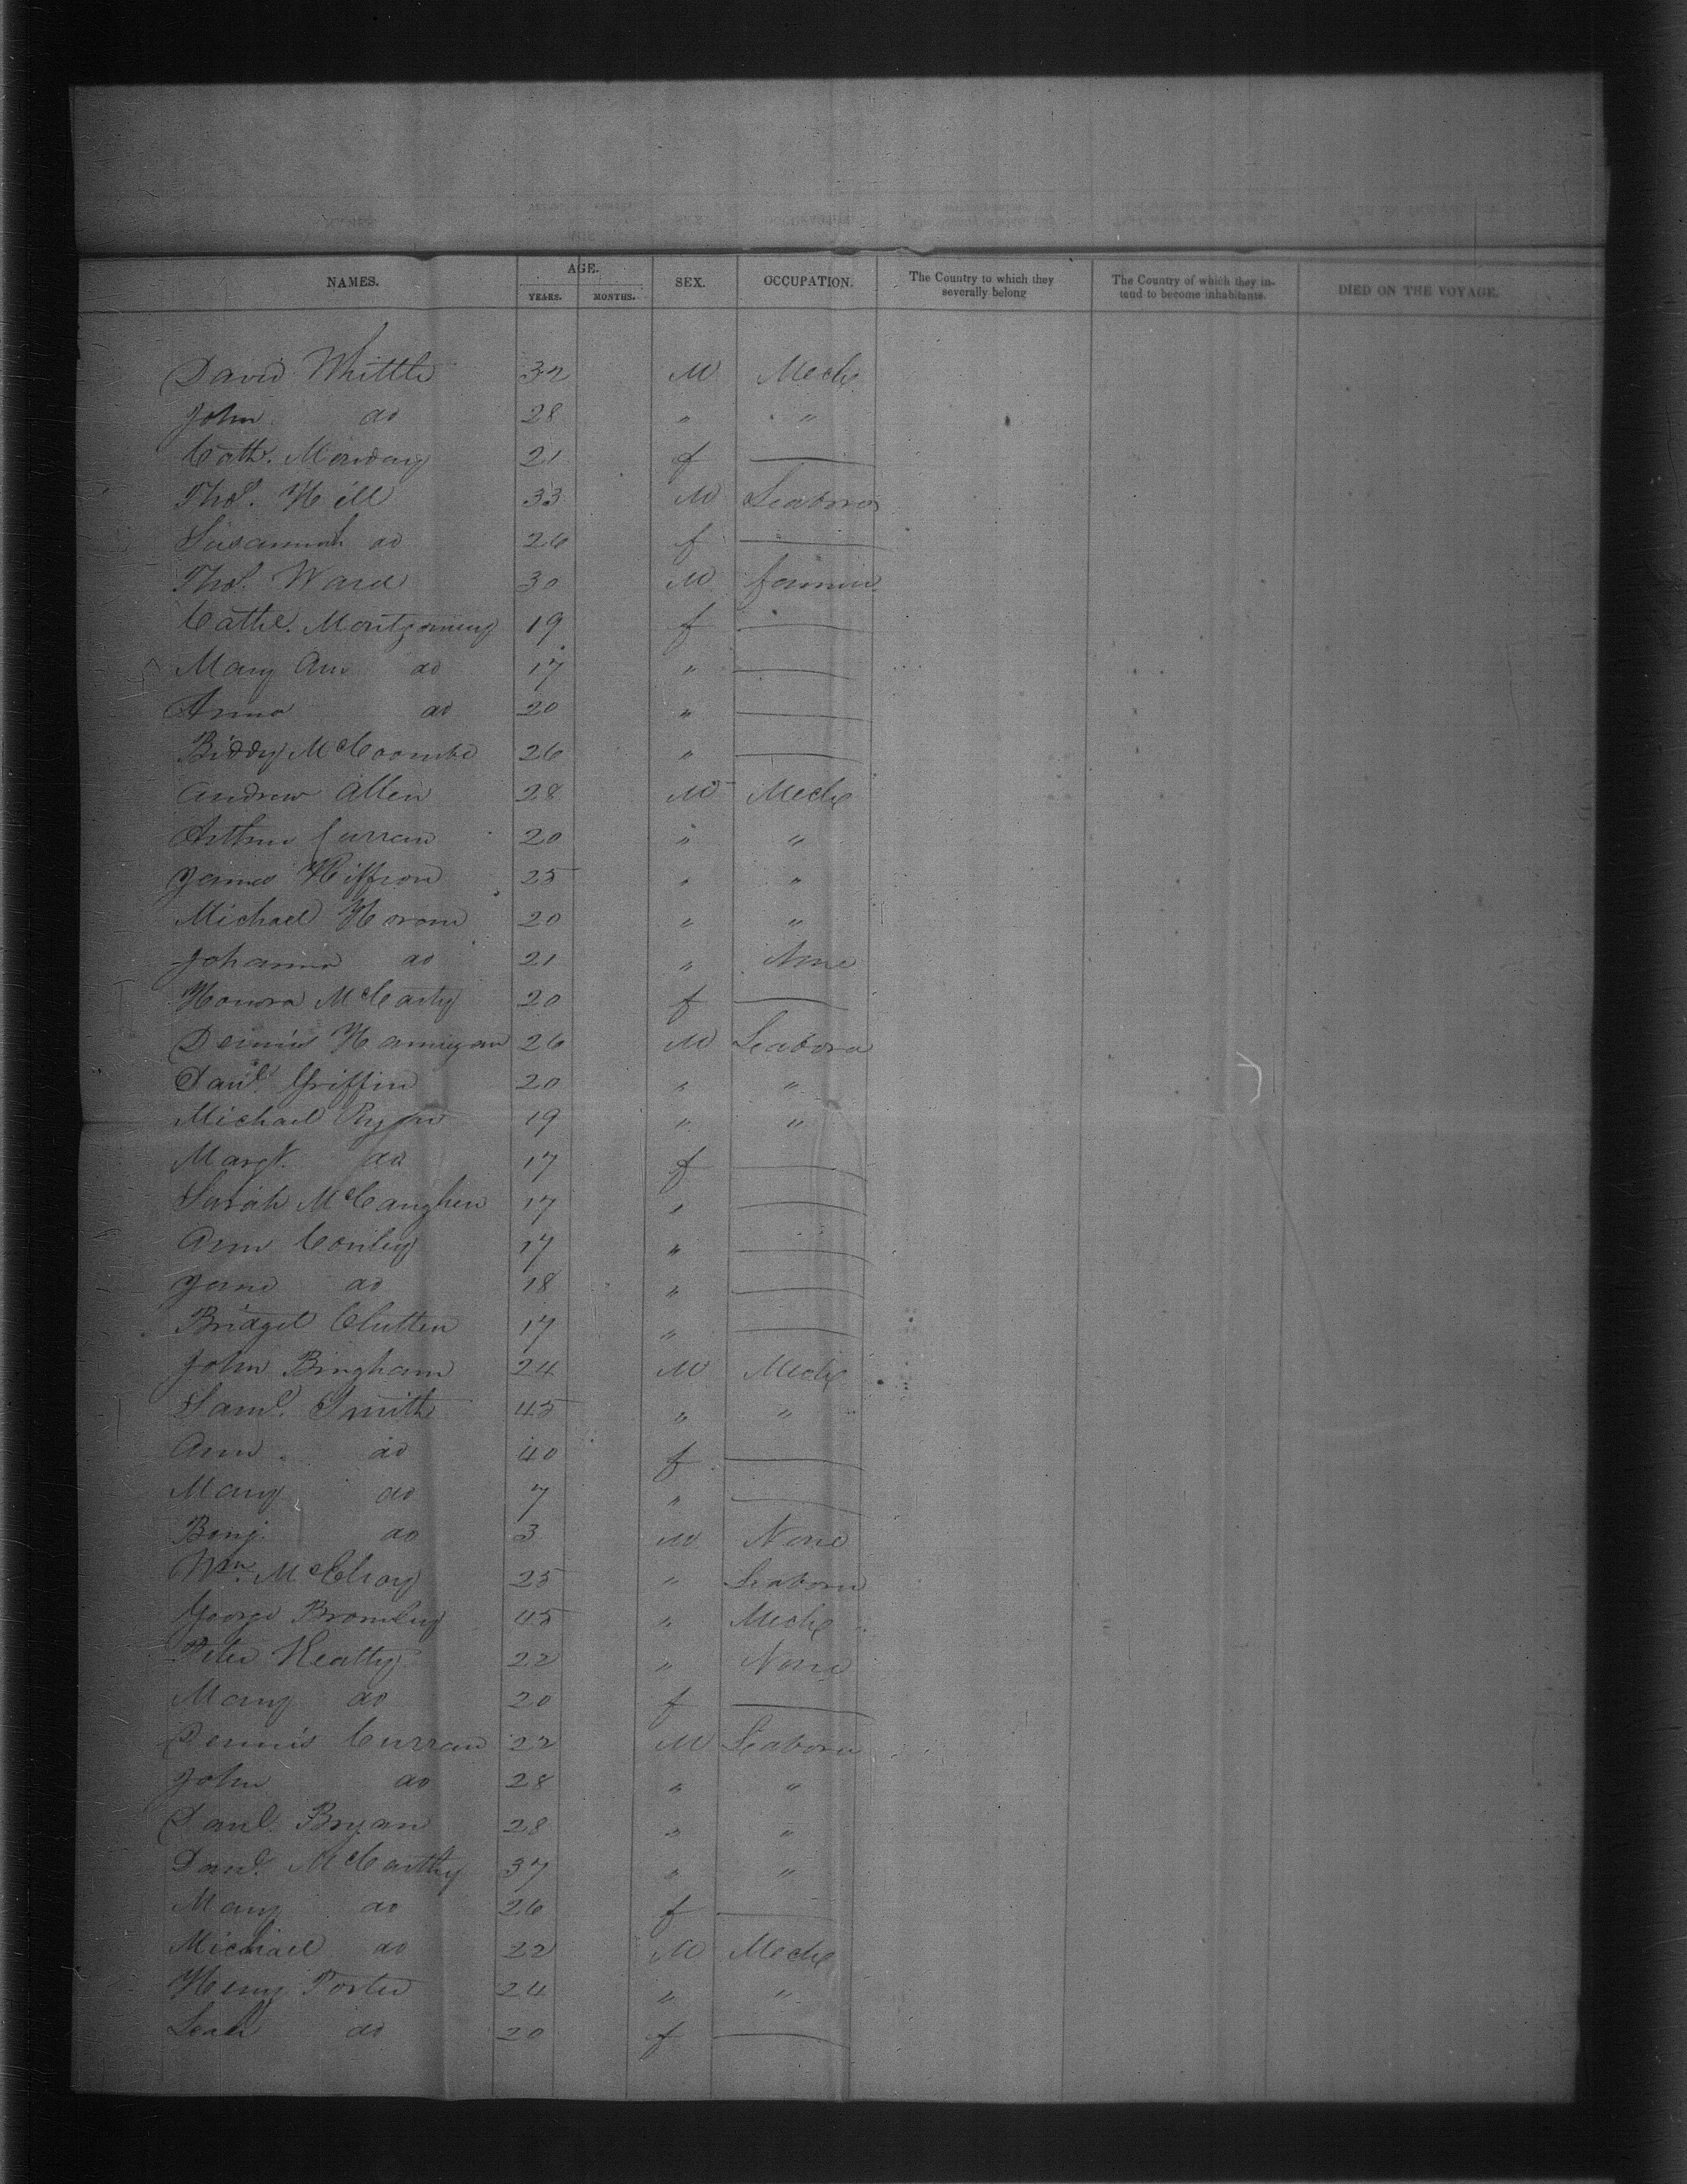 NAMES. AGE. YEARS. MONTHS. SEX. OCCUPATION. The Country to which they severally belong The Country of which they in-tend to become inhabitants. DIED ON THE VOYAGE.
David Whittle 32 M Mech
John do 28 " "
Cath. Monday 21 f —
Thos. Hill 33 M Leaborer
Susannah do 26 f —
Thos. Ward 30 M farmer
Cathe. Montgomery 19 f —
Mary Ann do 17 " —
Anna do 20 " —
Biddy McCoombe 26 " —
Andrew Allen 28 M Mech
Arthur Curran 20 " "
James Hiffron 25 " "
Michael Horane 20 " "
Johanna do 21 " None
Honora McCarty 20 f —
Dennis Hannigan 26 M Leabora
Danl. Griffin 20 " "
Michael Ryan 19 " "
Margt. do 17 f —
Sarah McCaughen 17 " —
Ann Conley 17 " —
Jane do 18 " —
Bridget Clutten 17 " —
John Bingham 24 M Mech
Saml. Smith 45 " "
Ann do 40 f —
Mary do 7 " —
Benj. do 3 M None
Wm. McElroy 25 " Leaborer
George Bromley 45 " Mech
Peter Keatty 22 " None
Mary do 20 f —
Dennis Curran 22 M Leaborer
John do 28 " "
Danl Bryan 28 " "
Danl. McCarthy 37 " "
Mary do 26 f —
Michael do 22 M Mech
Henry Porter 24 " "
Leah do 20 f —